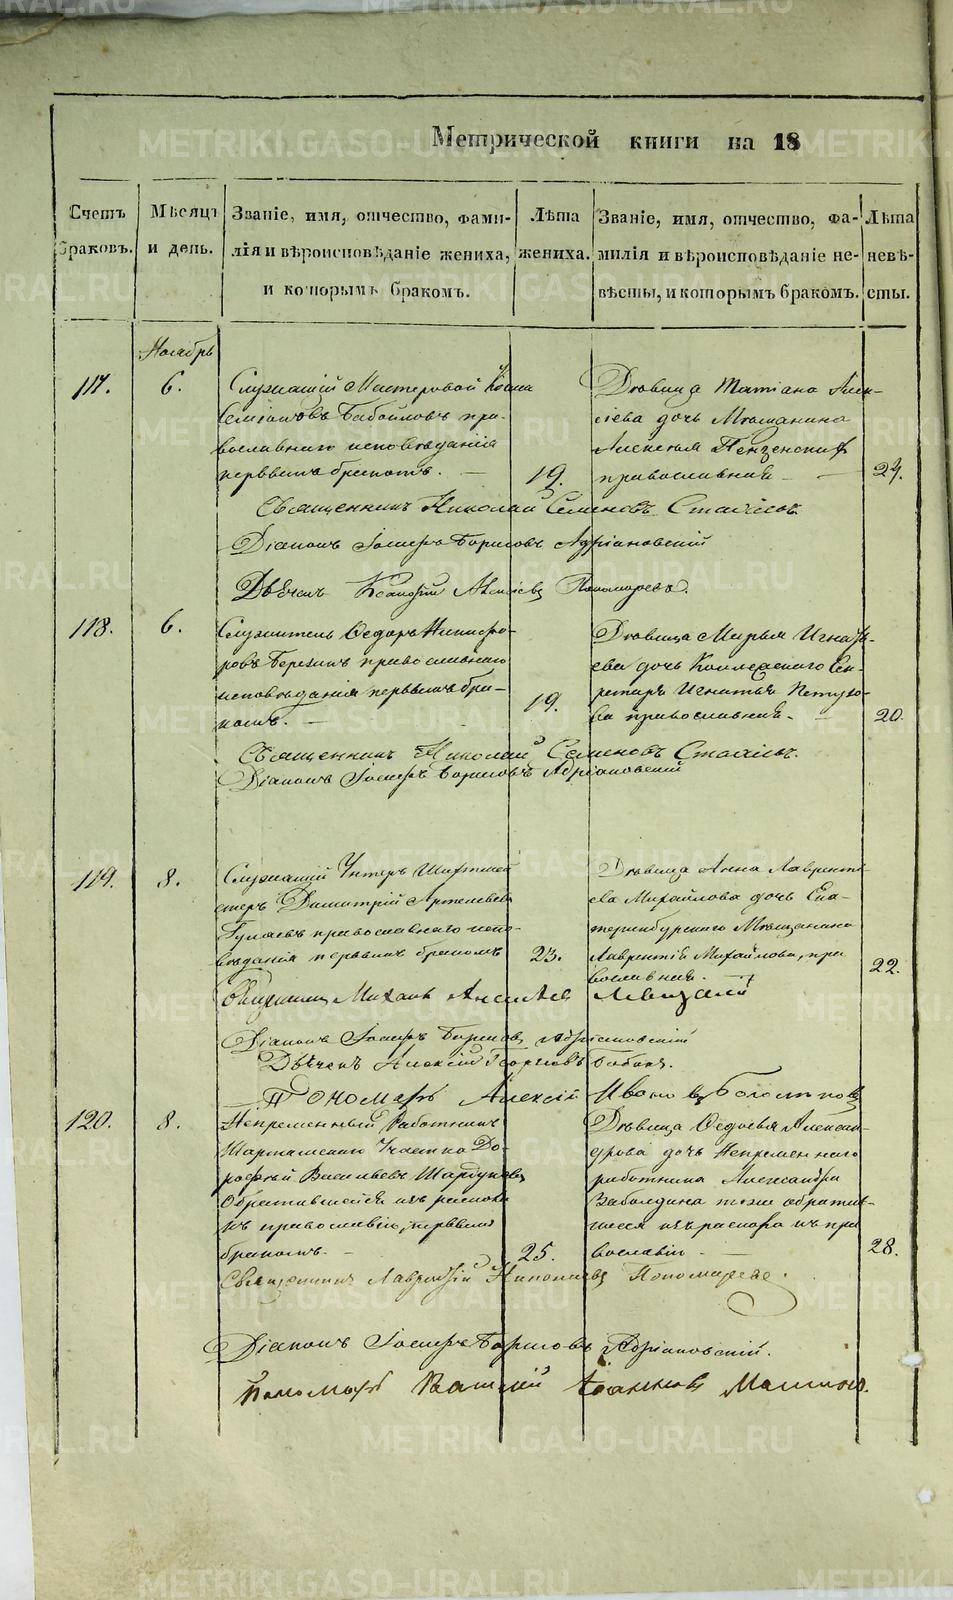 Метрической книги на 18
Счетъ браковъ.
Мѣсяцъ и день.
Званіе, имя, отчество, фами-
лія и вѣроисповѣданіе жениха,
и которымъ бракомъ.
Лѣта
жениха.
Званіе, имя, отчество, фа-
милія и вѣроисповѣданіе не-
вѣсты, и которымъ бракомъ.
Лѣта
невѣ-
сты.
Ноябрь
117.
6.
Служащій Мастеровой
православнаго исповѣданія
первымъ бракомъ.
19.
Дѣвица Татіана Алек-
сѣева дочь Мѣщанина
Алексѣя
православная
Священникъ Николай Семеновъ
Діаконъ Іосифъ Борисовъ Адріановскій
Дьячекъ Алексіевъ Пономаревъ.
118.
6.
Служитель Ѳедоръ Никифо-
ровъ Березинъ православнаго
исповѣданія первымъ бра-
комъ.
19.
Дѣвица Марья Игнать-
ева дочь Коллежскаго Сек-
ретаря Игнатья Петухо-
ва православная.
20.
Священникъ Николай Семеновъ
Діаконъ Іосифъ Борисовъ Адріановскій
119.
8.
Служащій Унтеръ Шихтмей-
стеръ Димитрій Артемьевъ
православнаго испо-
вѣданія первымъ бракомъ
23.
Дѣвица Анна Лавренть-
ева Михайлова дочь Ека-
теринбургскаго Мѣщанина
Лаврентія Михайлова, пра
вославная.
22.
Михаилъ
Діаконъ Іосифъ Борисовъ Адріановскій
Дьячекъ Алексій Георгіевъ
Пономарь Алексій Ивановъ
120.
8.
Непременный Работникъ
Шарташскаго Участка До-
рофѣй Васильевъ
Обратившейся изъ раскола
къ православію, первымъ
бракомъ.
25.
Дѣвица Ѳедосья Алексан-
дрова дочь Непременнаго
работника Александра
тоже обратив-
шаяся изъ раскола къ пра
вославію.
28.
Священникъ Лаврентій Пономаревъ.
Діаконъ Іосифъ Борисовъ Адріановскій.
Пономарь Василій Іоанновъ
METRIKI.GASO-URAL.RU